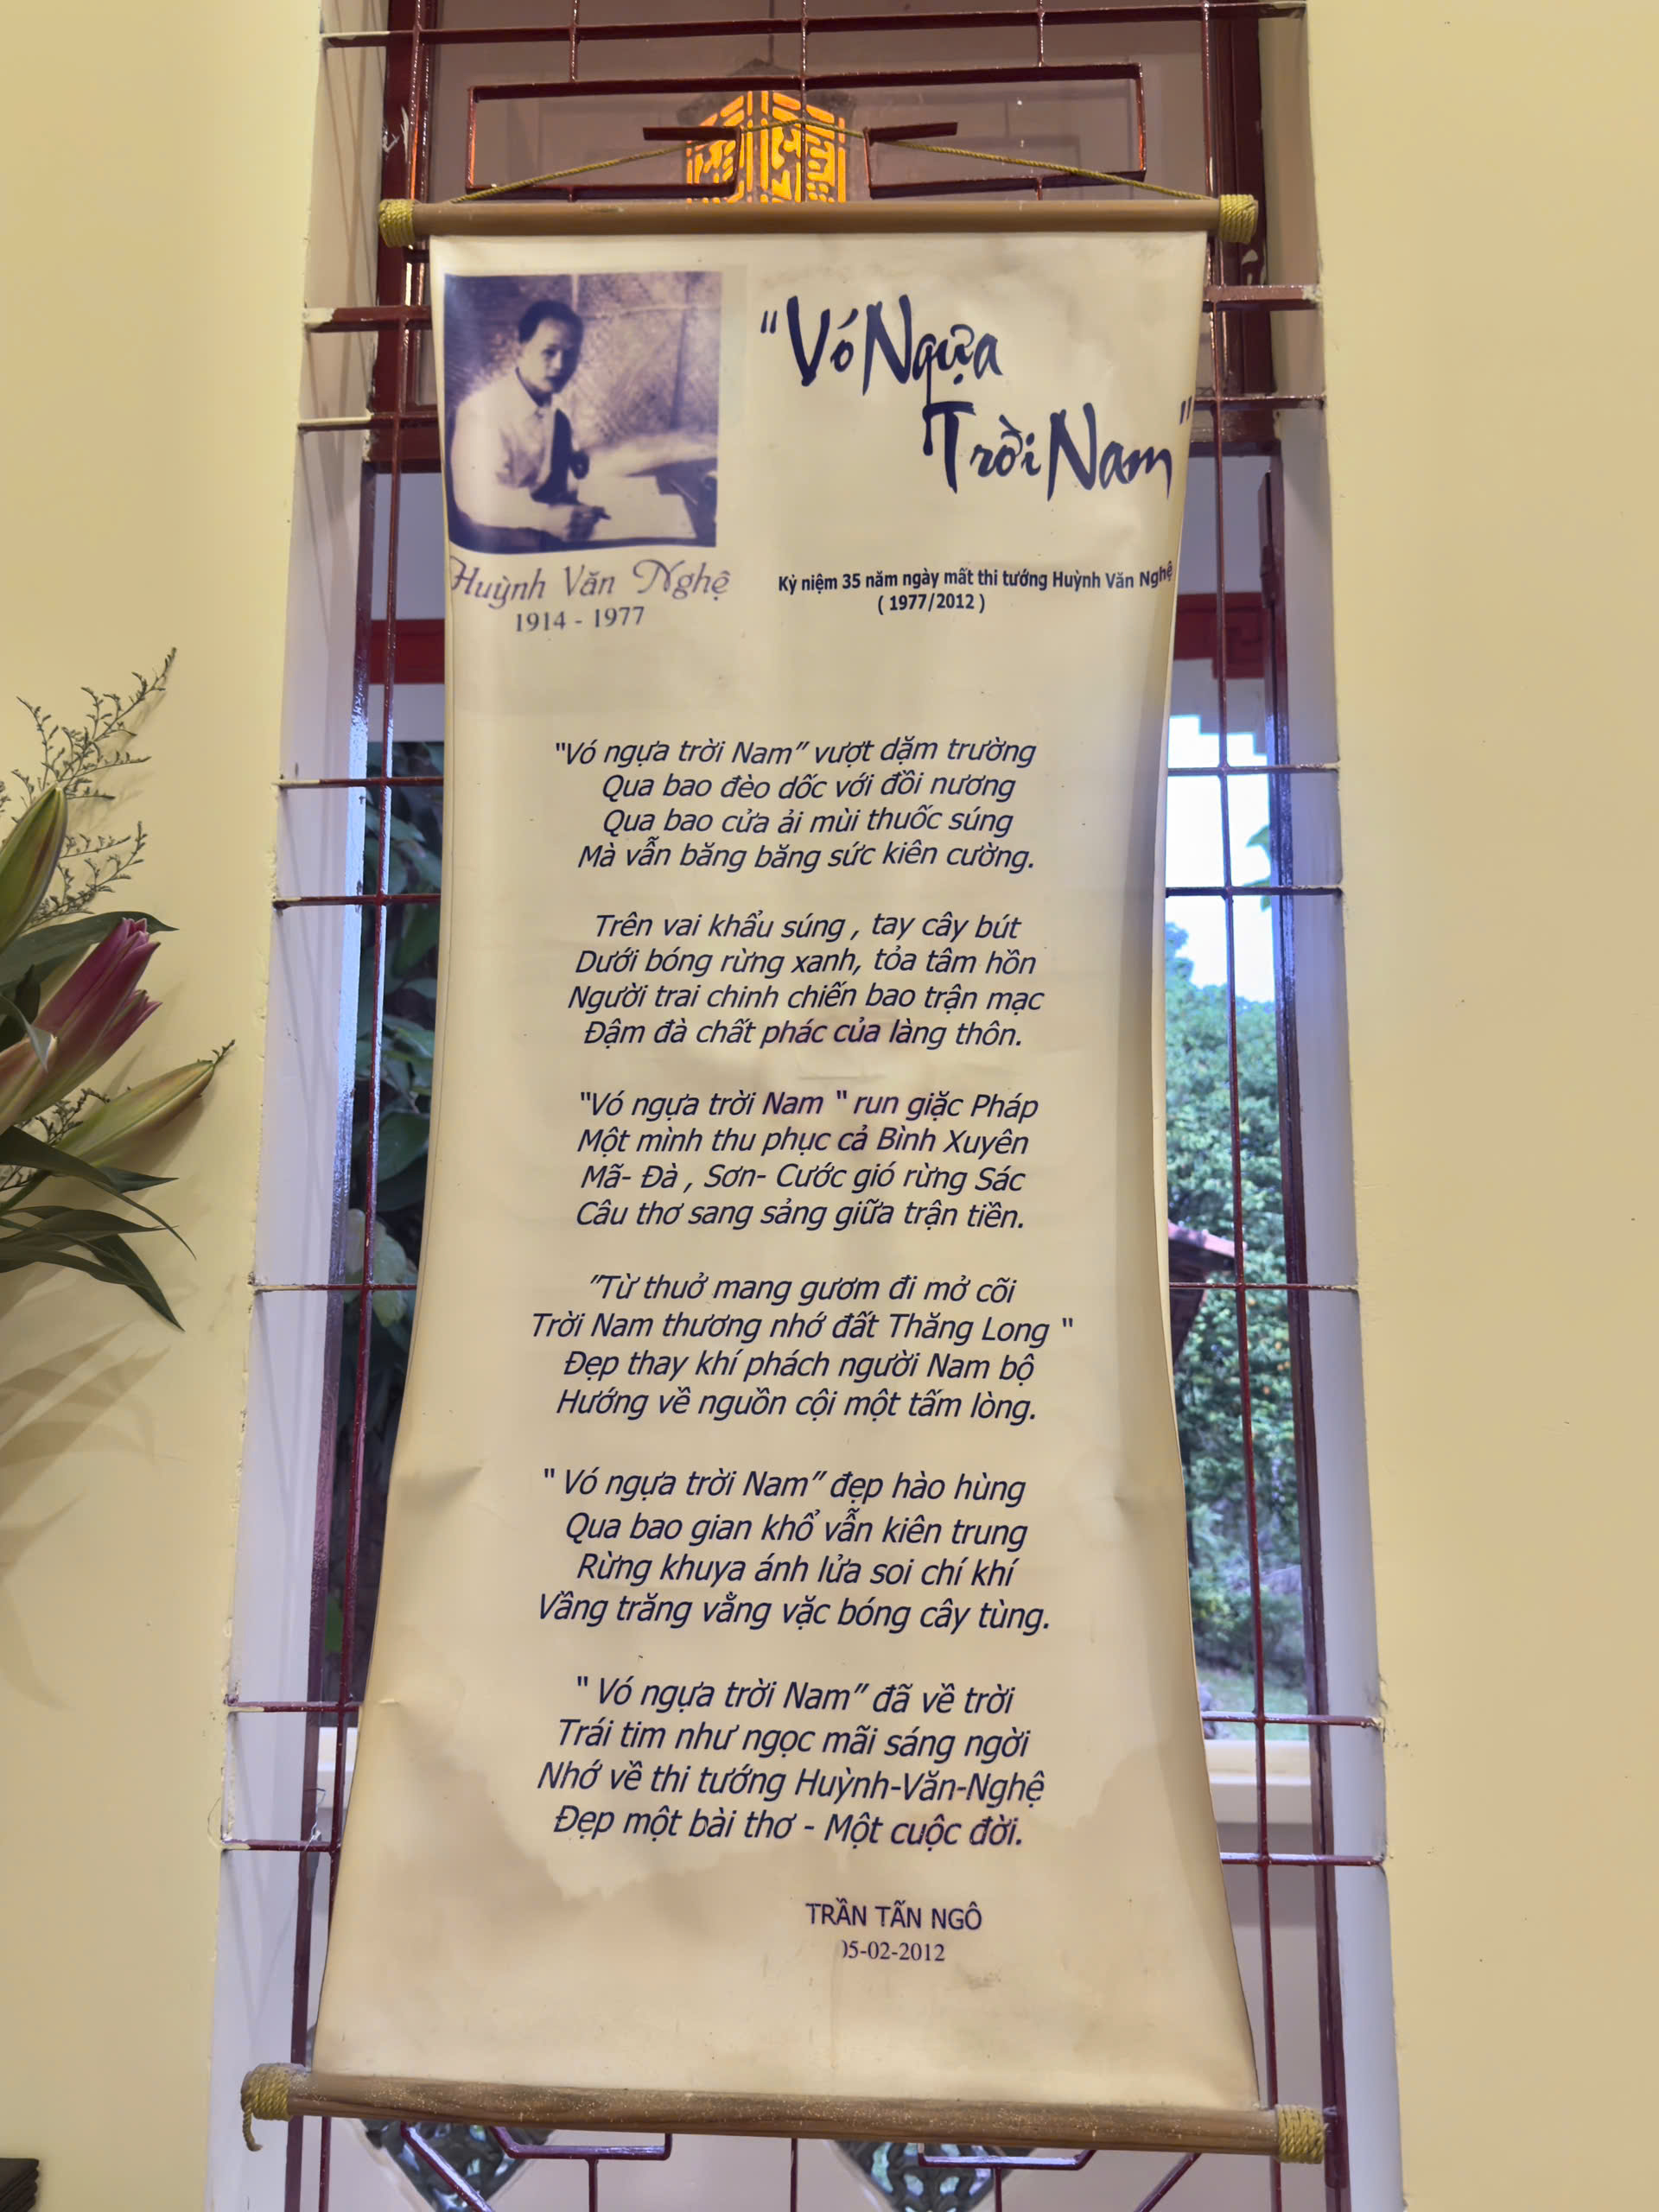 "Vó Ngựa
Trời Nam"
Huỳnh Văn Nghệ
1914 - 1977
Kỷ niệm 35 năm ngày mất thi tướng Huỳnh Văn Nghệ
( 1977/2012 )
"Vó ngựa trời Nam" vượt dặm trường
Qua bao đèo dốc với đồi nương
Qua bao cửa ải mùi thuốc súng
Mà vẫn băng băng sức kiên cường.
Trên vai khẩu súng , tay cây bút
Dưới bóng rừng xanh, tỏa tâm hồn
Người trai chinh chiến bao trận mạc
Đậm đà chất phác của làng thôn.
"Vó ngựa trời Nam " run giặc Pháp
Một mình thu phục cả Bình Xuyên
Mã- Đà , Sơn- Cước gió rừng Sác
Câu thơ sang sảng giữa trận tiền.
"Từ thuở mang gươm đi mở cõi
Trời Nam thương nhớ đất Thăng Long "
Đẹp thay khí phách người Nam bộ
Hướng về nguồn cội một tấm lòng.
" Vó ngựa trời Nam" đẹp hào hùng
Qua bao gian khổ vẫn kiên trung
Rừng khuya ánh lửa soi chí khí
Vầng trăng vằng vặc bóng cây tùng.
" Vó ngựa trời Nam" đã về trời
Trái tim như ngọc mãi sáng ngời
Nhớ về thi tướng Huỳnh-Văn-Nghệ
Đẹp một bài thơ - Một cuộc đời.
TRẦN TẤN NGÔ
05-02-2012